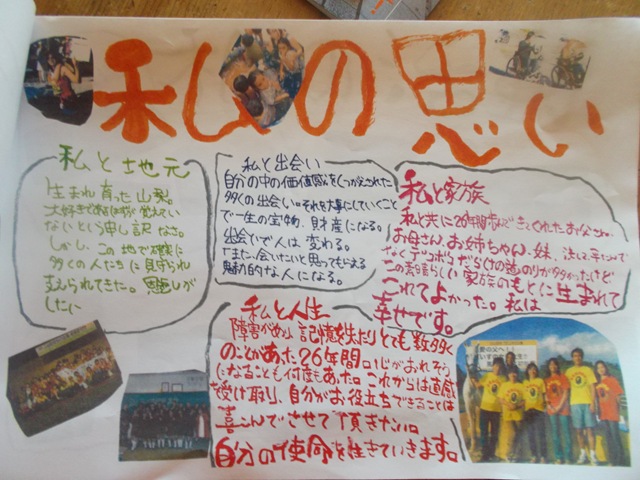 私の思い
私と地元
生まれ育った山梨。
大好きで
ないという申し訳なさ。
しかし、この地で確実に
多くの人たちに見守られ
支えられてきた。
私と出会い
自分の中の価値感をくつがえされた
多くの出会い。それを大事にしていくこと
で一生の宝物、財産になる。
出会いで人は変わる。
「また、会いたい」と思ってもらえる
魅力的な人になる。
私と家族
私と共に26年間歩んできてくれたお父さん、
お母さん、お姉ちゃん、妹、決して平らでは
なくデコボコだらけの道のりが多かったけど
この素晴らしい家族のもとに生まれて
これてよかった。私は
幸せです。
私と人生
障害があり、記憶を失ったりとても数多く
のことがあった26年間。心がおれそう
になることも何度もあった。これからは直感
を受け取り、自分がお役立ちできることは
喜んでさせて頂きたい。
自分の使命を生きていきます。